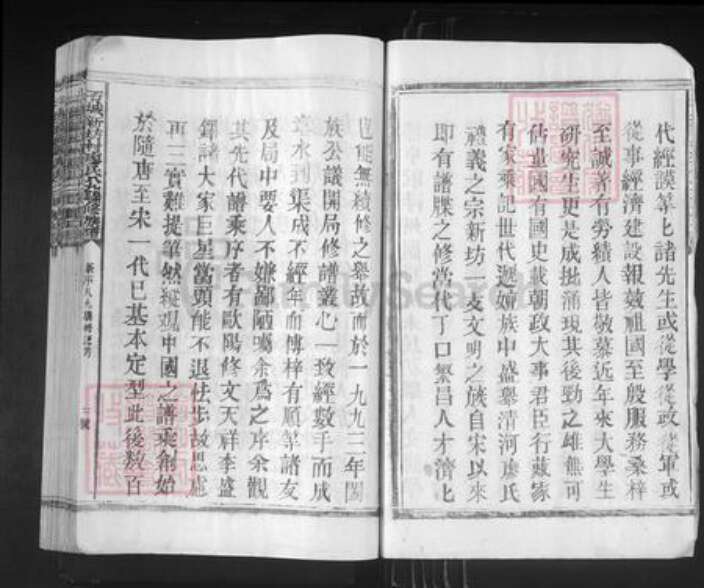 代經謨等匕諸先生或從學從政從軍或
從事經濟建設報效祖國至殷服務桑梓
至誠著有勞績人皆敬慕近年來大學生
研究生更是成批涌現其後勁之雄無可
估量國有國史載朝政大事君臣行藏家
有家乘記世代遞嬗族中盛舉清河 氏
禮義之宗新坊一支文明之族自宋以來
即有譜牒之修當代丁口繁昌人才濟匕
豈能無續修之舉故而於一九九三年闔
族公議開局修譜叢心一致經數手而成
逐水到集成不經年而傅梓有順 諸友
及局中要人不嫌鄙陋囑余爲之序余觀
其先代譜乘序者有歐陽修文天祥李盛
鐸諸大家巨星當頭能不退怯步故思慮
再三實難提筆然縱觀中國之譜乘創始
於隨唐至宋一代已基本定型此後數百
新坊村 氏 修族譜
FamilySearch